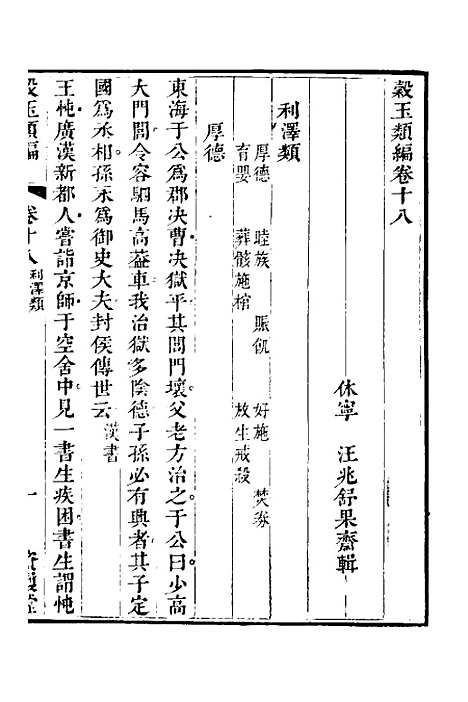 穀玉類編卷十八
休寧 汪兆舒果齋輯
利澤類
厚德 睦族 賑飢 好施 焚券
育嬰 葬骸施棺 放生戒殺
厚德
東海于公爲郡决曹决獄平其閭門壞父老方治之于公曰少高
大門閭令容駟馬高葢車我治獄多陰德子孫必有興者其子定
國爲丞相孫永爲御史大夫封侯傳世云漢書
王忳廣漢新都人嘗詣京師于空舍中見一書生疾困書生謂忳
穀玉類編 卷十八 利澤類 一